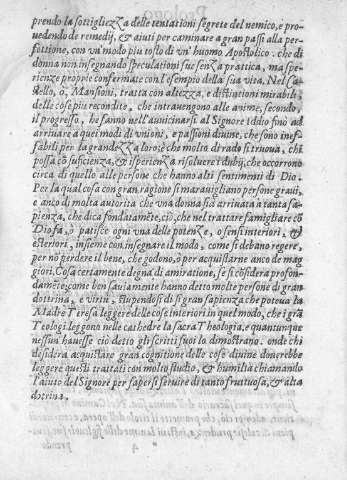 prendo la sottigliezza delle tentationi segrete del nemico, e pro-
uedendo de remedij, & aiuti per caminare a gran passi alla per-
fettione, con vn'modo piu tosto di vn'huomo Apostolico. che di
donna non insegnando speculationi sue senza prattica, ma spe-
rienze proprie confermate con l'esempio della sua vita. Nel Ca-
stello, ò, Mansioni, tratta con altezza, e distintioni mirabili,
delle cose piu recondite, che intrauengono alle anime, secondo,
il progresso, he fanno nell'auuicinarsi al Signore iddio fino ad
arriuare a quei modi di vnioni, e passioni diuine, che sono inef-
fabili per la grandezza loro: è che molto di rado si truoua, chi
possa cō suficienza, & isperienza risoluere i dubij, che occorrono
circa di quello alle persone che hanno alti sentimenti di Dio.
Per la qual cosa con gran ragione si marauigliano persone graui,
e anco di molta autorita che vna donna sia arriuata à tanta sa-
pienza, che dica fondatamēte, ciò, che nel trattare famigliare cō
Dio fa, o patisce ogni vna delle potenze, o sensi interiori, &
esteriori, insieme con insegnare il modo, come si debano regere,
per nò perdere il bene, che godono, ò per acquistarne anco de mag
giori. Cosa certamente degna di amiratione, se si cōsidera profon-
damēte; come ben sauiamente hanno detto molte persone di gran
dottrina, e virtù, stupendosi di si gran sapienza che poteua la
Madre Teresa leggere delle cose interiori in quel modo, che i grā
Teologi leggono nelle cathedre la sacra Theologia, e quantunque
nessun hauesse ciò detto gli scritti suoi lo dimostrano. onde chi
desidera acquistare gran cognitione delle cose diuine douerebbe
leggere questi trattati con molto studio, & humilià chiamando
l'aiuto del Signore per sapersi seruire di tanto fruttuosa, & alta
dotrina.